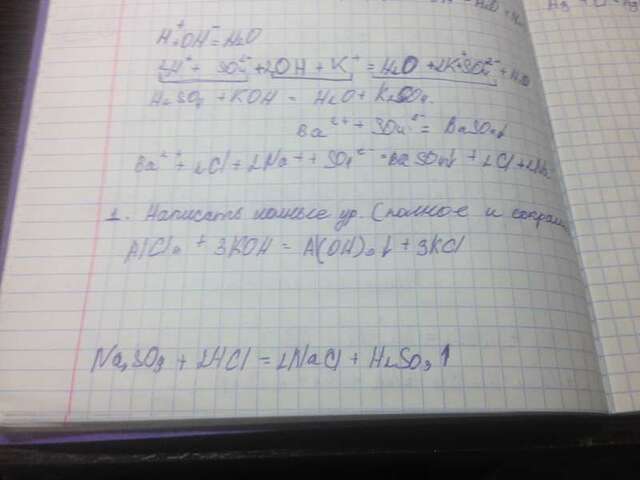 H⁺ + OH⁻ = H₂O
2H⁺ + SO₄²⁻ + 2OH + K⁺ = H₂O + 2K⁺SO₄²⁻ + H₂O
H₂SO₄ + KOH = H₂O + K₂SO₄
Ba²⁺ + SO₄²⁻ = BaSO₄↓
Ba²⁺ + 2Cl + 2Na⁺ + SO₄²⁻ = BaSO₄↓ + 2Cl + 2Na
1. Написать ионные ур. (полное и сокращ
AlCl₃ + 3KOH = Al(OH)₃↓ + 3KCl
Na₂SO₃ + 2HCl = 2NaCl + H₂SO₃↑